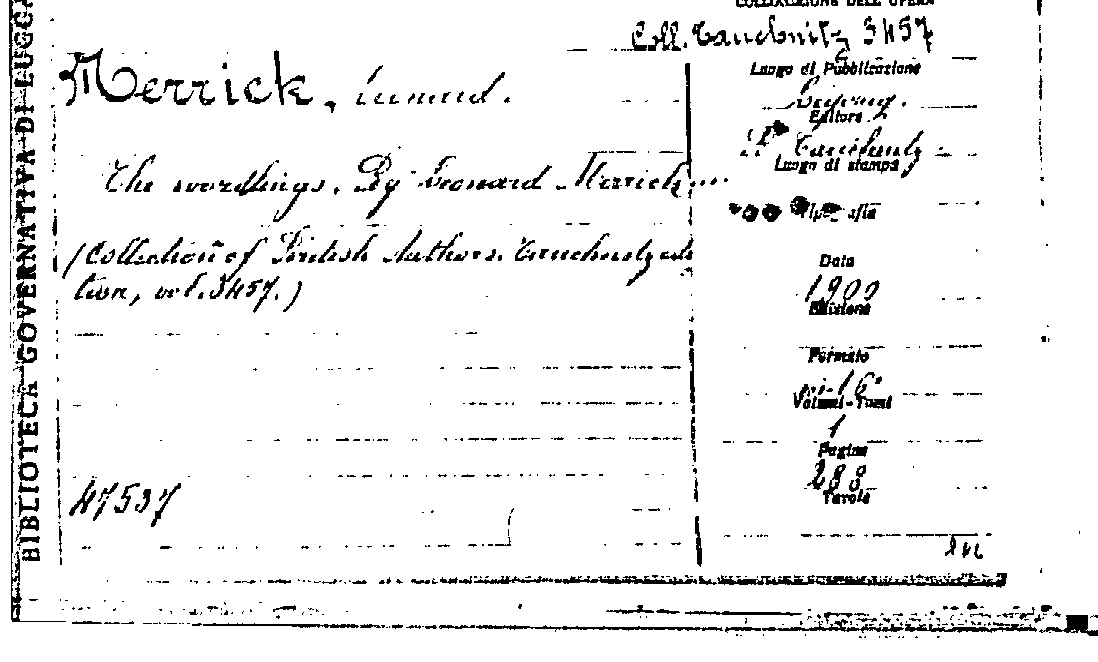 BIBLIOTECA GOVERNATIVA DI LUCCA
COLLOCAZIONE DELL'OPERA
Coll. Tauchnitz 3457
Merrick, Leonard.
Luogo di Pubblicazione
Leipzig.
Editore
B. Tauchnitz
Luogo di stampa
The wordlings. By Leonard Merrick...
Tipografia
(Collection of British Authors. Tauchnitz edi
tion, vol. 3457.)
Data
1900
Edizione
Formato
in-16°
Volumi-Tomi
1
Pagine
288
Tavole
47537